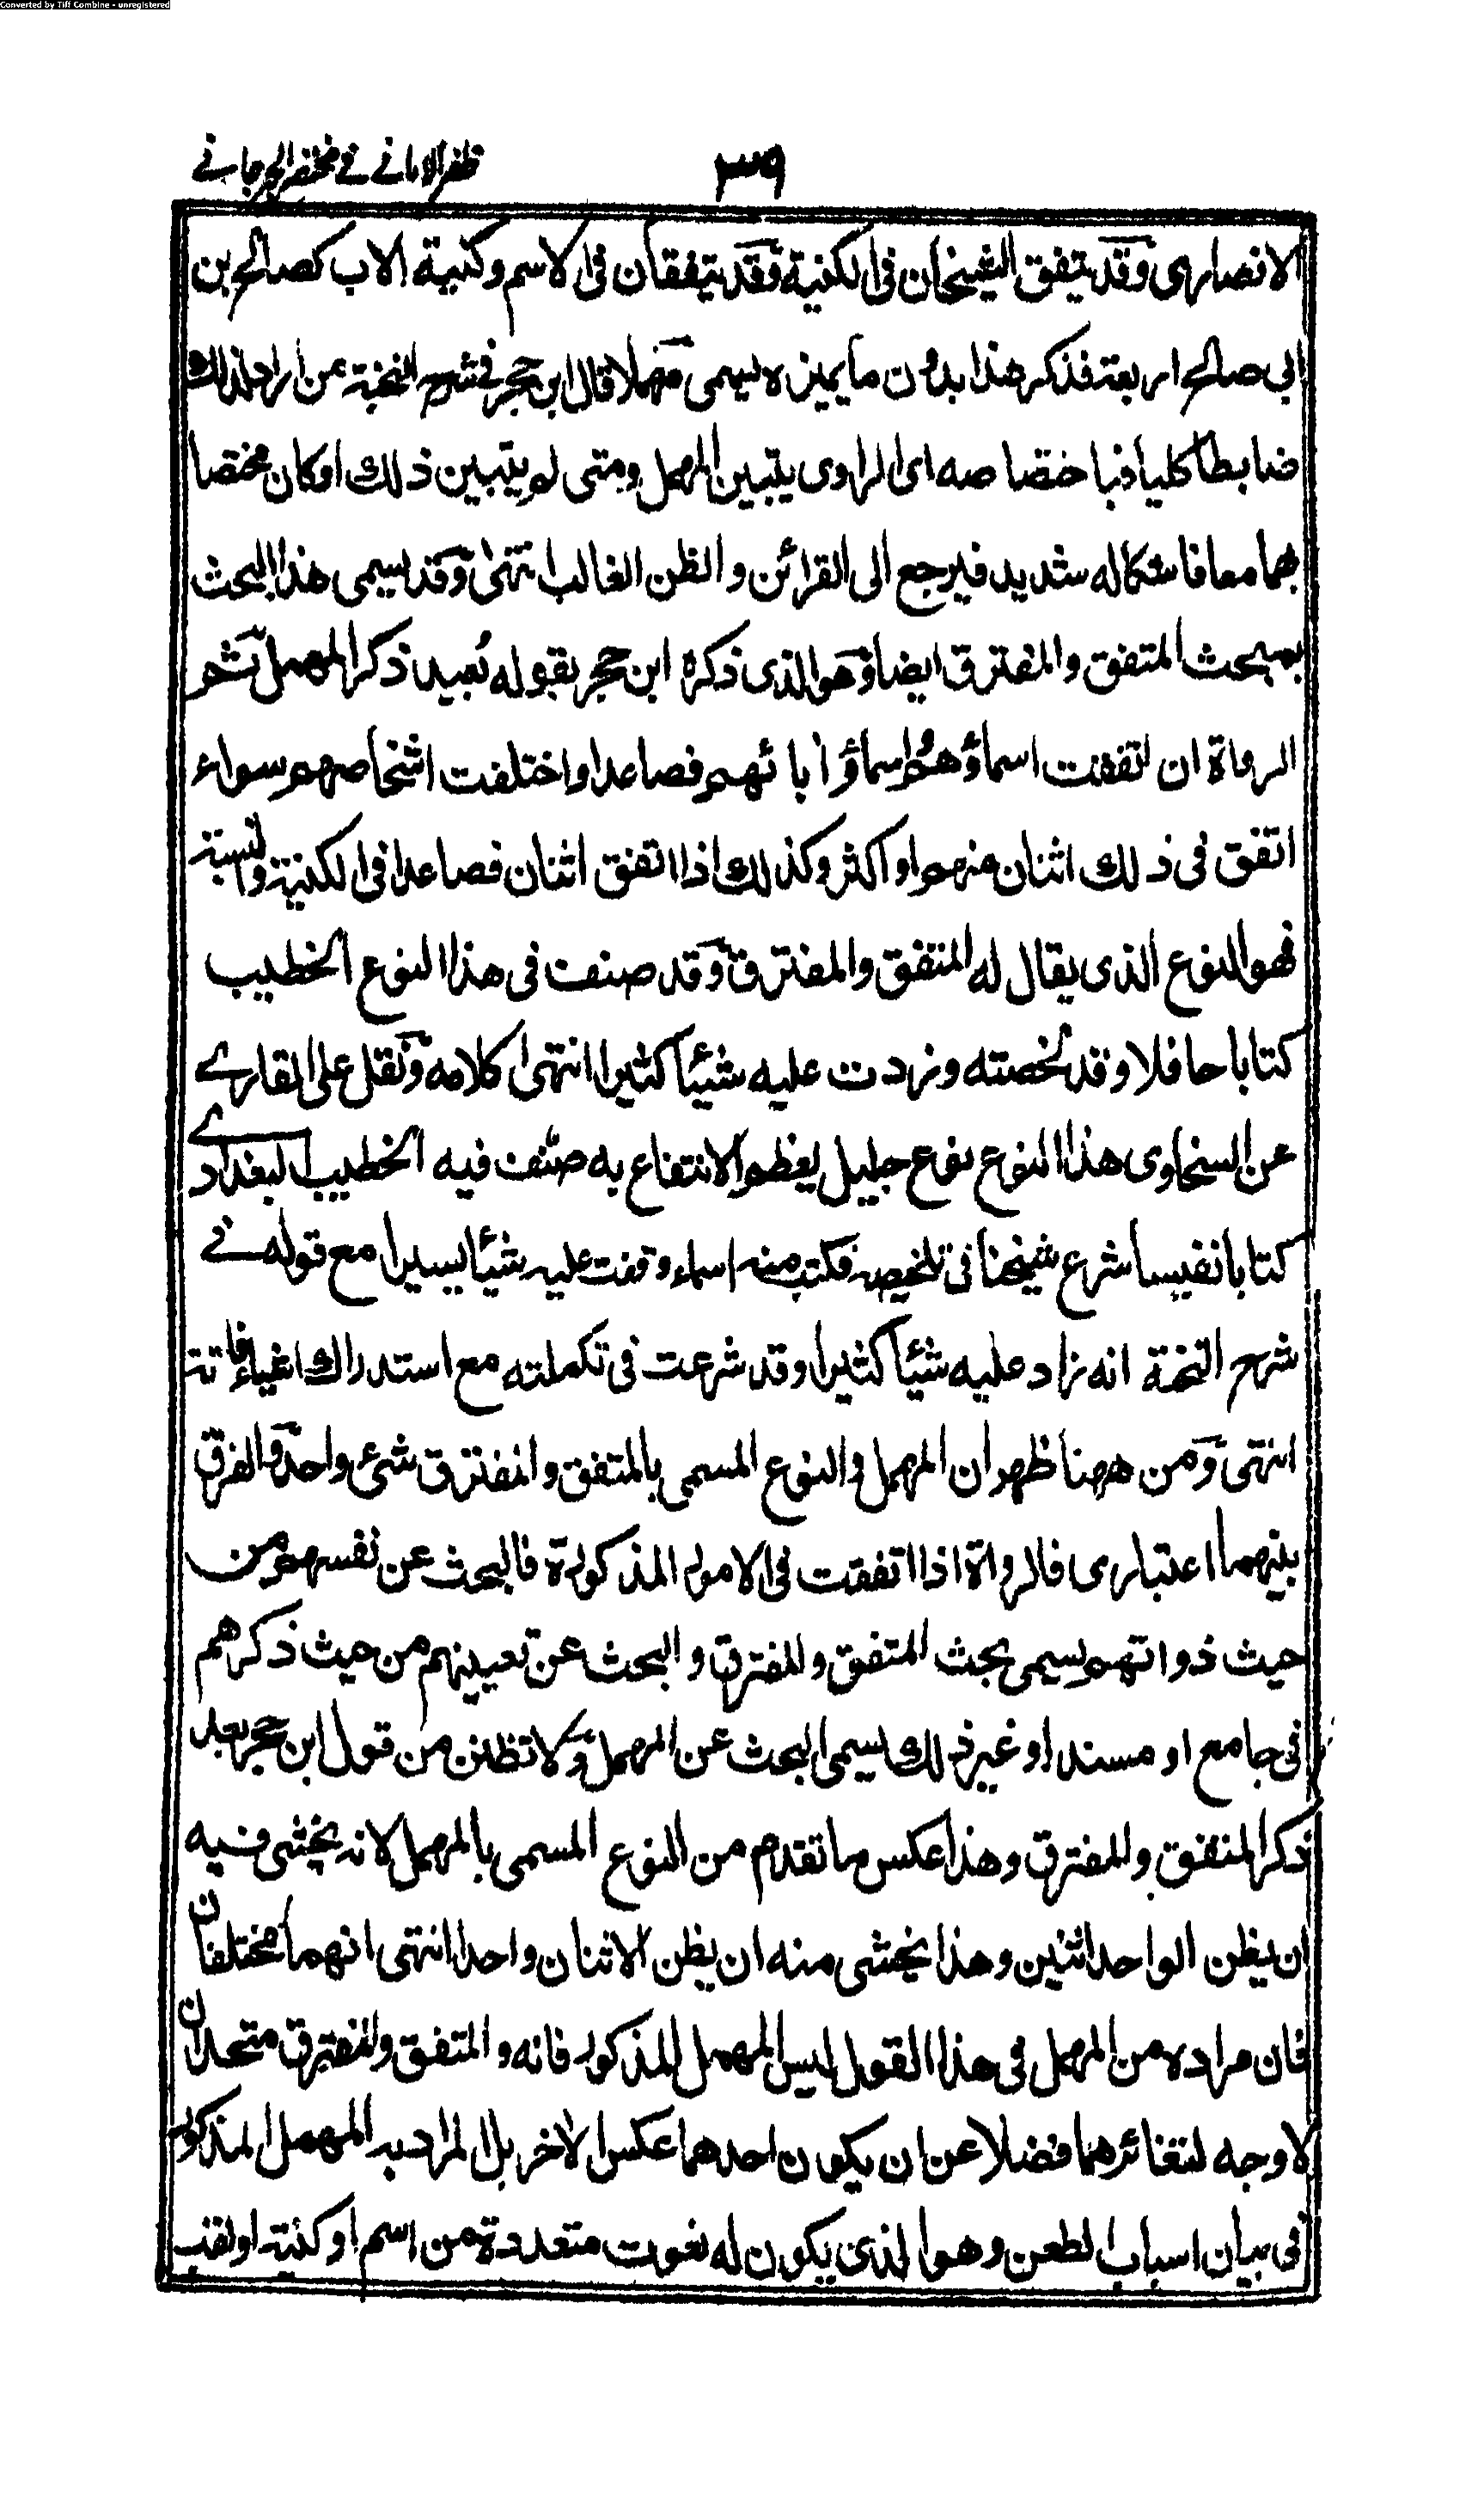 Converted by Tiff Combine - unregistered
ظفر الامانے فے مختصر الجرجانے
٣٩
الانصاری وقد يتفق الشيخان فی الكنية وقد يتفقان فی الاسم وكنية الاب كصالح بن
ابی صالح اربعة فذكر هذا بدون ما يميزه يسمى مهملا قال ابن حجر فی شرح النخبة من اراد لذلك
ضابطا كليا فباختصاصه ای الراوی يتبين المهمل ومتى لم يتبين ذلك او كان مختصا
بهما معا فاشكاله شديد فيرجع الى القرائن والظن الغالب انتهى وقد يسمى هذا البحث
بمبحث المتفق والمفترق ايضا وهو الذی ذكره ابن حجر بقوله بُعيد ذكر المهمل ثم
الرواة ان اتفقت اسماؤهم واسماؤ ابائهم فصاعدا واختلفت اشخاصهم سواء
اتفق فی ذلك اثنان منهم او اكثر وكذلك اذا اتفق اثنان فصاعدا فی الكنية والنسبة
فهو النوع الذی يقال له المتفق والمفترق وقد صنف فی هذا النوع الخطيب
كتابا حافلا وقد لخصته وزدت عليه شيئا كثيرا انتهى كلامه ونقل علی القارے
عن السخاوی هذا النوع نوع جليل يعظم الانتفاع به صنف فيه الخطيب البغدادے
كتابا نفيسا شرع شيخنا فی تلخيصه فكتب منه اسماء وقفت عليه شيئا يسيرا مع قوله فے
شرح النخبة انه زاد عليه شيئا كثيرا وقد شرعت فی تكملته مع استدراك اشياء فاتته
انتهى ومن ههنا ظهر ان المهمل والنوع المسمى بالمتفق والمفترق شئ واحد والفرق
بينهما اعتباری فالرواة اذا اتفقت فی الامور المذكورة فالبحث عن نفسهم من
حيث ذواتهم يسمى بحث المتفق والمفترق والبحث عن تعيينهم من حيث ذكرهم
فی جامع او مسند او غير ذلك يسمى البحث عن المهمل ولا تظنن من قول ابن حجر بعد
ذكر المتفق والمفترق وهذا عكس ما تقدم من النوع المسمى بالمهمل لانه يخشى فيه
ان يظن الواحد اثنين وهذا يخشى منه ان يظن الاثنان واحدا انتهى انهما مختلفان
فان مراده من المهمل فی هذا القول ليس المهمل المذكور فانه والمتفق والمفترق متحدان
لا وجه لتغائرهما فضلا عن ان يكون احدهما عكس الاخر بل المراد به المهمل المذكور
فی بيان اسباب الطعن وهو الذی يكون له نعوت متعددة من اسم او كنية او لقب